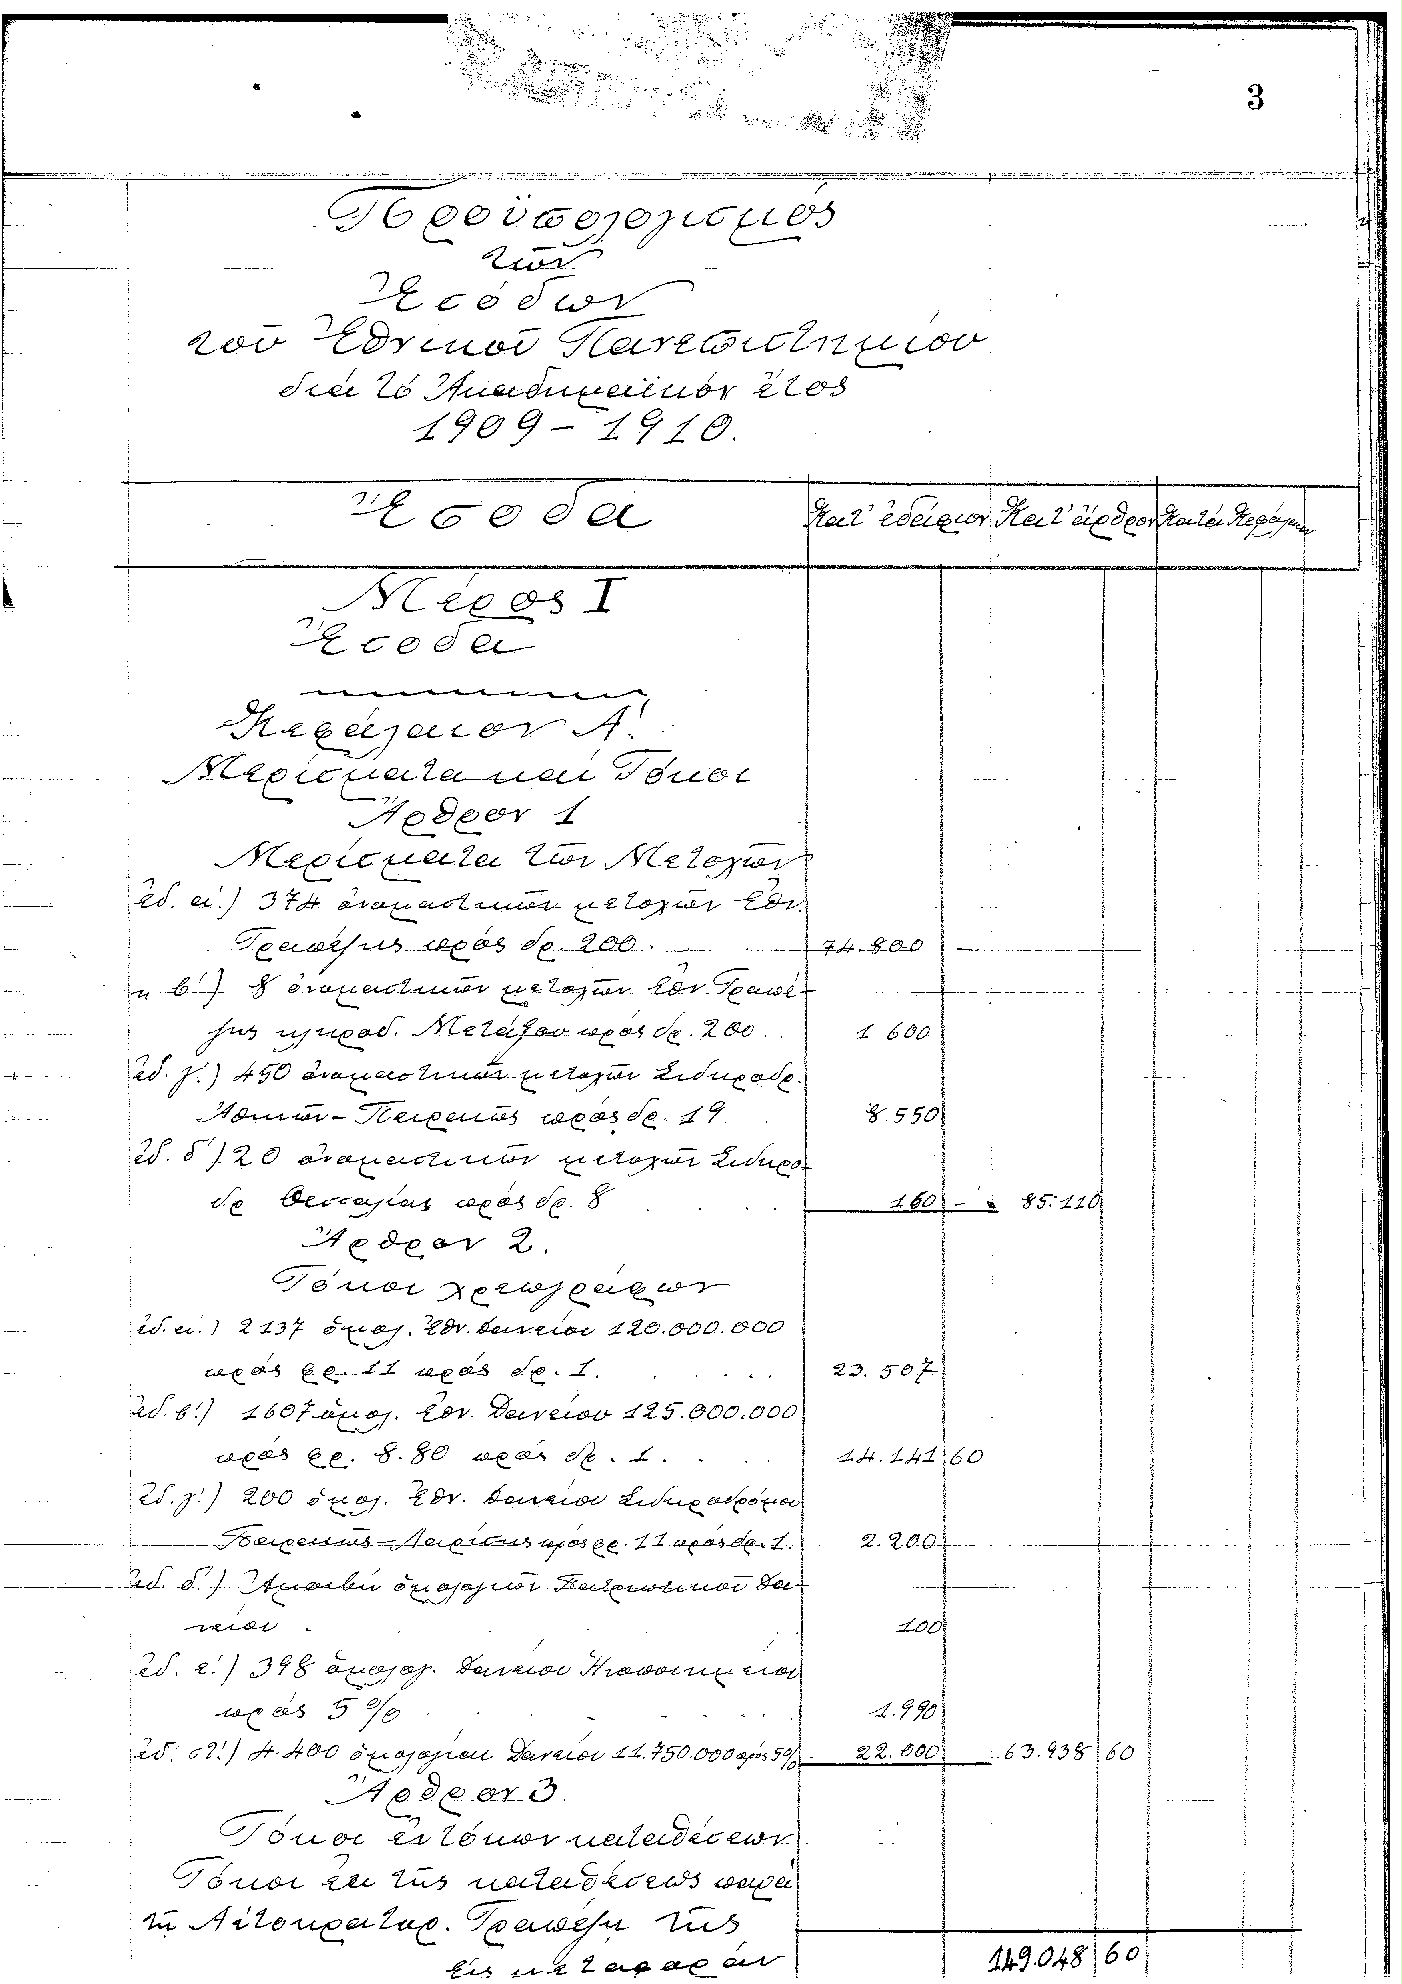 3
Προϋπολογισμός
τῶν
Ἐσόδων
τοῦ Ἐθνικοῦ Πανεπιστημίου
διά τό Ἀκαδημαϊκόν ἔτος
1909 – 1910.
Ἔσοδα Κατ' ἐδάφιον Κατ' ἄρθρον Κατά Κεφάλαιον
Μέρος I
Ἔσοδα
Κεφάλαιον Α'.
Μερίσματα καί Τόκοι
Ἄρθρον 1
Μερίσματα τῶν Μετοχῶν
ἐδ. α'.) 374 ὀνομαστικῶν μετοχῶν Ἐθν.
Τραπέζης πρός δρ. 200. 74.800
" β'.) 8 ὀνομαστικῶν μετοχῶν Ἐθν. Τραπέ-
ζης κληροδ. Μεταξου πρός δρ. 200 . . 1 600
ἐδ. γ'.) 450 ὀνομαστικῶν μετοχῶν Σιδηροδρ.
Ἀθηνῶν – Πειραιῶς πρός δρ. 19 8.550
ἐδ. δ'.) 20 ὀνομαστικῶν μετοχῶν Σιδηρο-
δρ Θεσσαλίας πρός δρ. 8 160 – 85.110
Ἄρθρον 2.
Τόκοι χρεωγράφων
ἐδ. α'.) 2137 ὁμολ. Ἐθν. Δανείου 120.000.000
πρός φρ. 11 πρός δρ. 1. 23.507
ἐδ. β'.) 1607 ὁμολ. Ἐθν. Δανείου 125.000.000
πρός φρ. 8.80 πρός δρ. 1. 14.141 60
ἐδ. γ'.) 200 ὁμολ. Ἐθν. Δανείου Σιδηροδρόμου
Πειραιῶς – Λαρίσης πρός φρ. 11 πρός δρ. 1. 2.200
ἐδ. δ'.) Ἀμοιβή ὁμολογιῶν Πατριωτικοῦ Δα-
νείου . 100
ἐδ. ε'.) 398 ὁμολογ. Δανείου
πρός 5 % 1.990
ἐδ. στ'.) 4.400 ὁμολογίαι Δανείου 11.750.000 πρός 5% 22.000 63.938 60
Ἄρθρον 3
Τόκοι ἐντόκων καταθέσεων
Τόκοι ἐκ τῆς καταθέσεως παρά
τῇ Αὐτοκρατορ. Τραπέζῃ τῆς
εἰς μεταφοράν 149.048 60